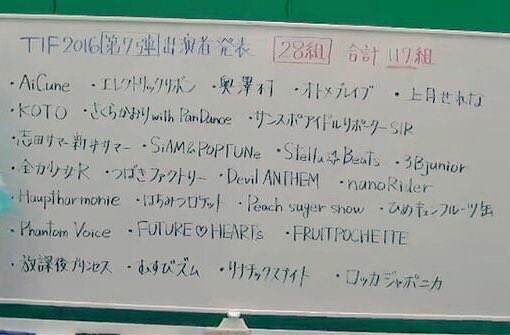 TIF2016 第7弾 出演者発表 28組 合計 117組
・AiCune ・エレクトリックリボン ・奥澤村 ・オトメブレイブ ・上月せれな
・KOTO ・さくらかおり with PanDance ・サンスポアイドルリポーター SIR
・志田サマー新井サマー ・SiAM&POPTUNe ・Stella☆Beats ・3Bjunior
・全力少女R ・つばきファクトリー ・Devil ANTHEM ・nanoRider
・Hauptharmonie ・はちみつロケット ・Peach suger snow ・ひめキュンフルーツ缶
・Phantom Voice ・FUTURE♡HEARTs ・FRUITPOCHETTE
・放課後プリンセス ・むすびズム ・リナチックステイト ・ロッカジャポニカ